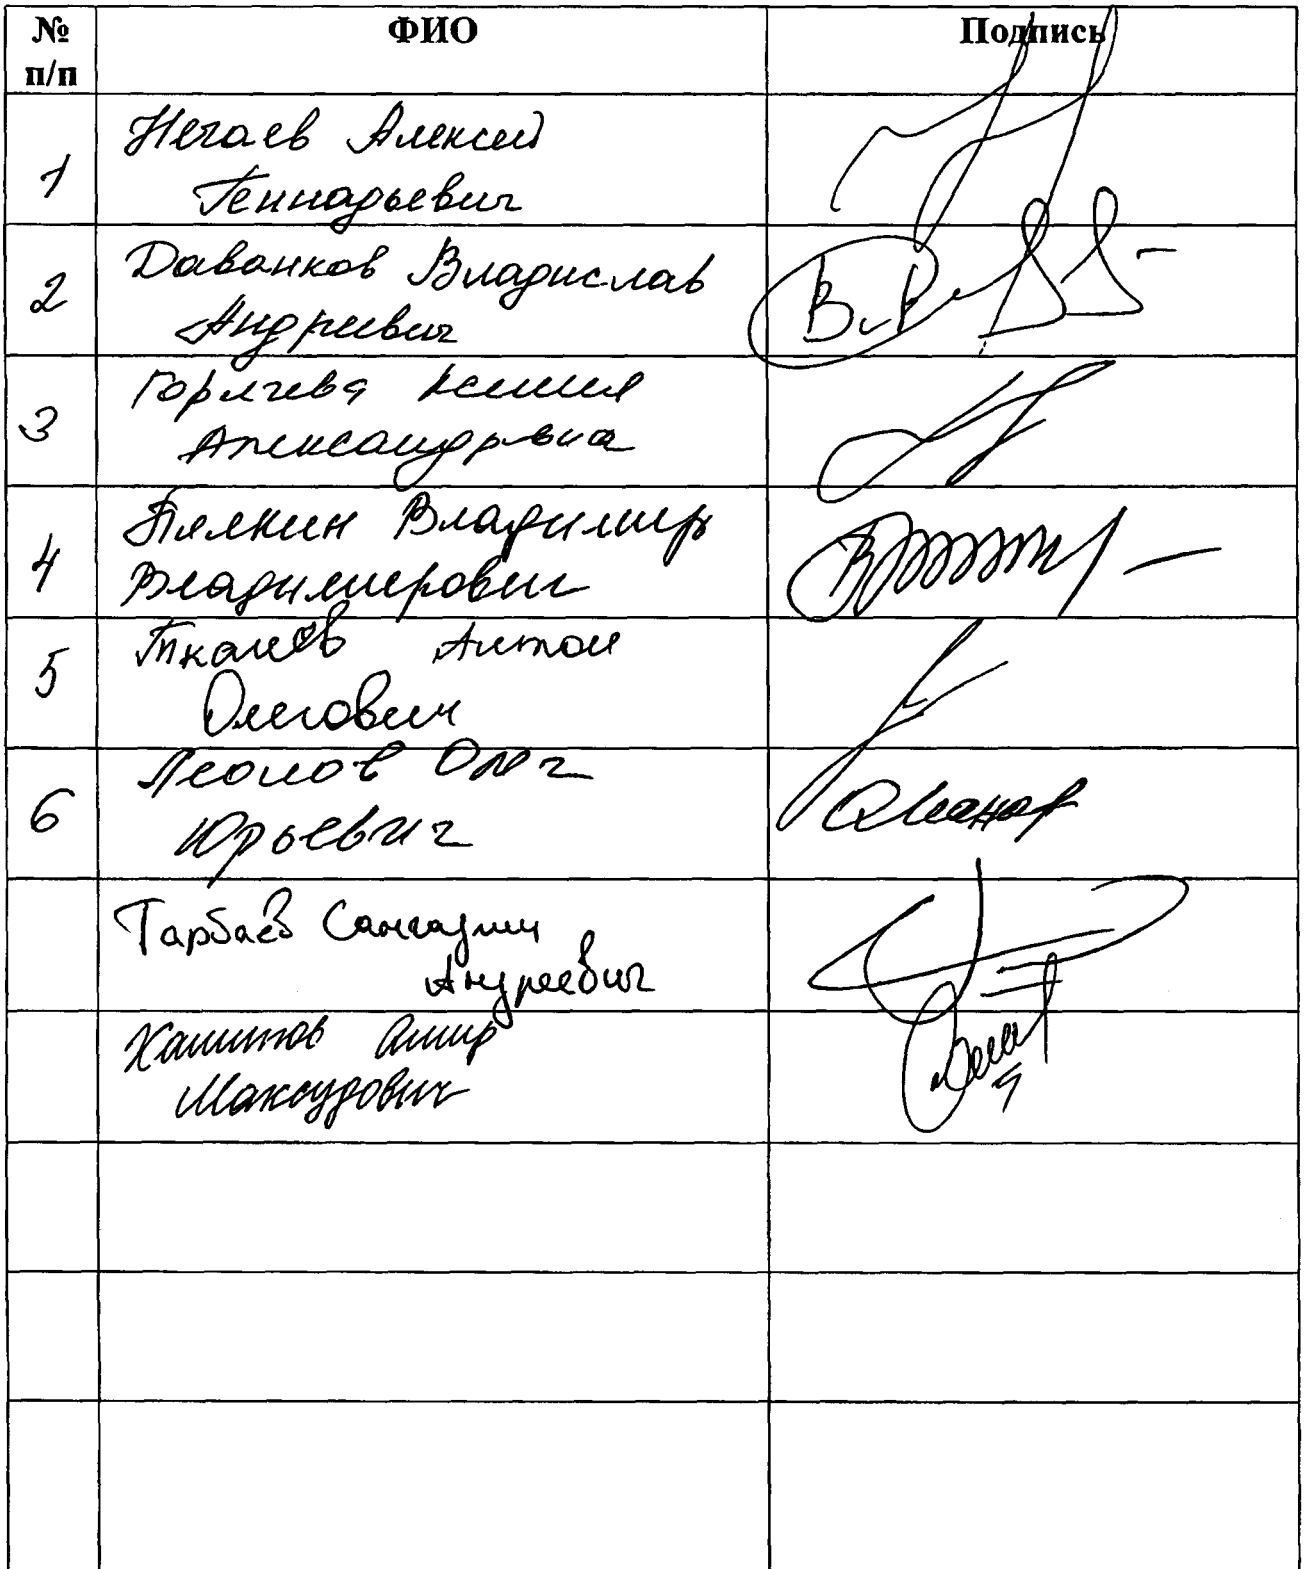 № п/п ФИО Подпись
1 Нечаев Алексей
Геннадьевич
2 Даванков Владислав
Андреевич
3 Горячева Ксения
Александровна
4 Плякин Владимир
Владимирович
5 Ткачёв Антон
Олегович
6 Леонов Олег
Юрьевич
Тарбаев Сангаджи
Андреевич
Хамитов Амир
Максудович